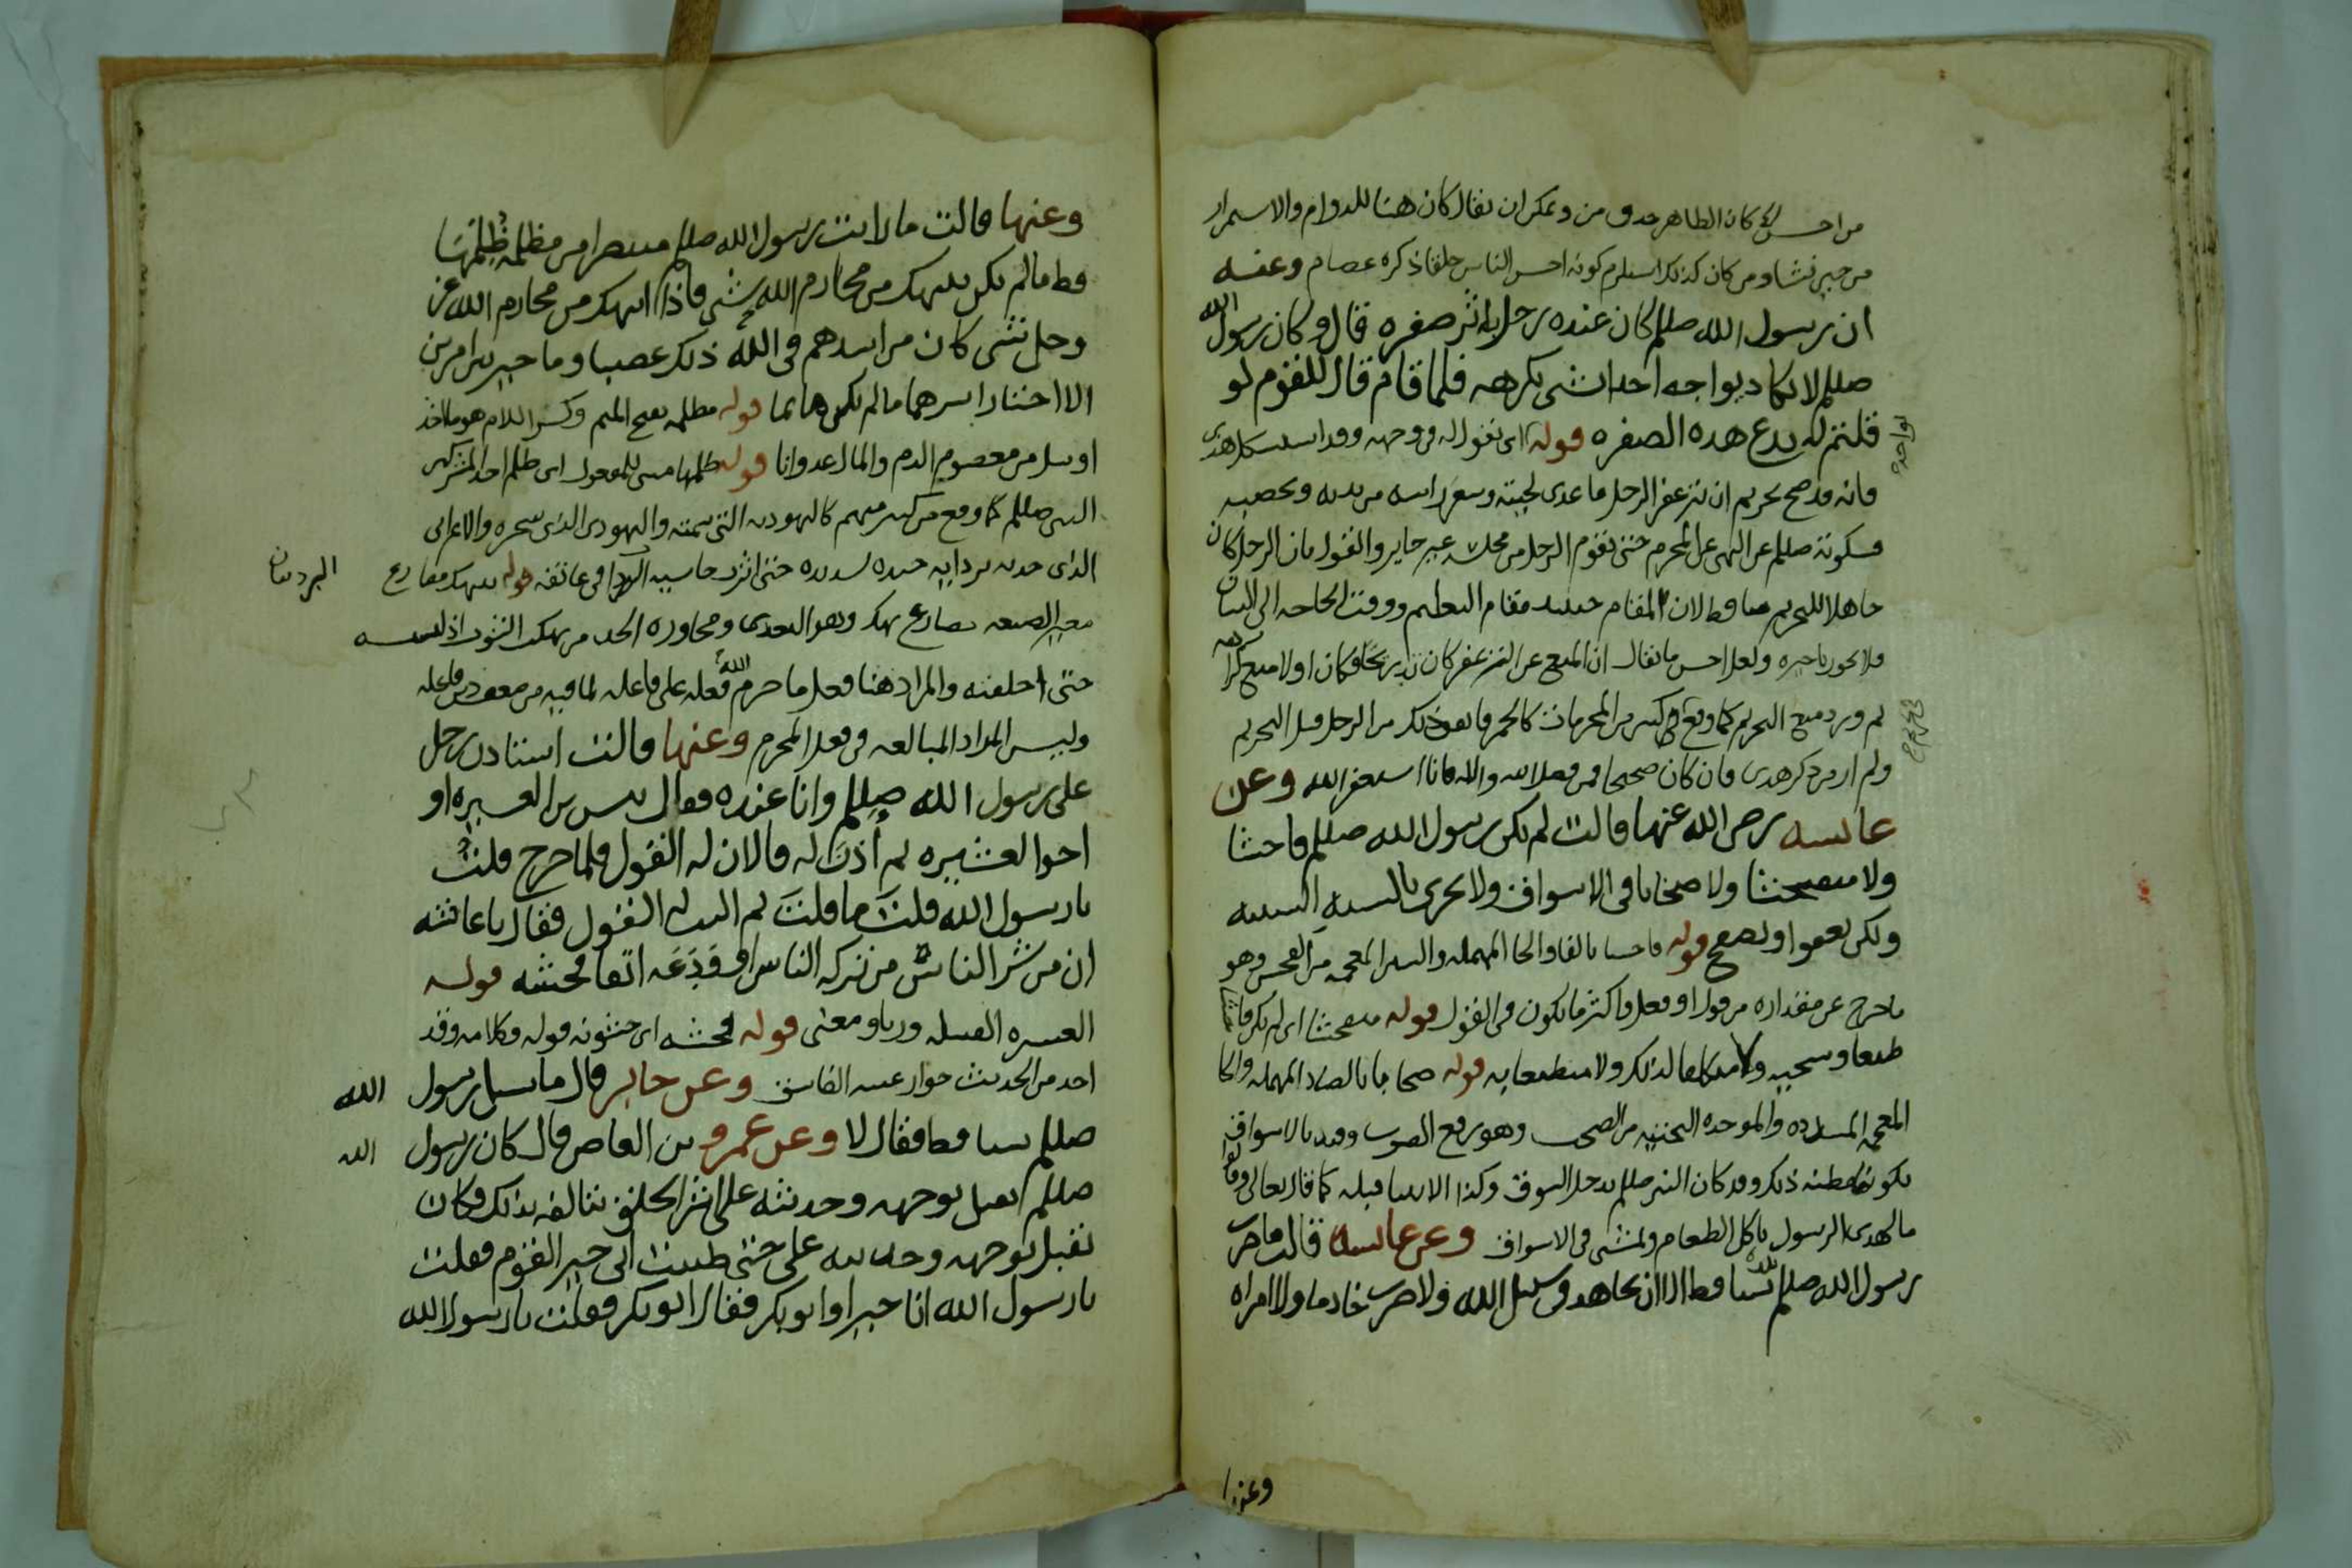 من احسن كان الظاهر حذف من ويمكن ان يقال كان هنا للدوام والاستمرار
من حين نشا ومن كان كذلك استلزم كونه احسن الناس خلقا ذكره عصام وعنه
ان رسول الله صللم كان عنده رجل به اثر صفره قال وكان رسول الله
صللم لا يكاد يواجه احدا بشي يكرهه فلما قام قال للقوم لو
قلتم له يدع هذه الصفره قوله اي يقول له في وجهه وقد استشكل هذي
فانه قد صح تحريم ان يتزعفر الرجل ما عدى لحيته وشعر راسه من بدنه
فسكوته صللم عن النهي عن المحرم حتى يقوم الرجل من محله غير جايز والقول بان الرجل كان
جاهلا للتحريم ساقط لان المقام حينئذ مقام التعليم ووقت الحاجه الى البيان
فلا يجوز تاخيره ولعل احسن ما يقال ان المنع عن التزعفر كان تدريجا فكان اولا منع كراهه
ثم ورد منع التحريم كما وقع في كثير من المحرمات كالخمر فاتفق ذلك من الرجل قبل التحريم
ولم ار من ذكر هذي فان كان صحيحا فمن فضل الله والا فانا استغفر الله وعن
عائشه رضي الله عنها قالت لم يكن رسول الله صللم فاحشا
ولا متفحشا ولا صخابا في الاسواق ولا يجزي بالسيئه السيئه
ولكن يعفوا ويصفح قوله فاحشا بالفا والحا المهمله والشين المعجمه من الفحش وهو
ما خرج عن مقداره من قول او فعل واكثر ما يكون في القول قوله متفحشا اي لم يكن فاحشا
طبعا وسجيه ولا متكلفا لذلك ولا متطبعا به قوله صخابا بالصاد المهمله والخا
المعجمه المشدده والموحده التحتيه من الصخب وهو رفع الصوت وقيد بالاسواق
لكونها مظنه ذلك وقد كان النبي صللم يدخل السوق وكذا الانبيا قبله كما قال تعالى وقالوا
ما لهذي الرسول ياكل الطعام ويمشي في الاسواق وعن عائشه قالت ما ضرب
رسول الله صللم بيده شيا قط الا ان يجاهد في سبيل الله ولا ضرب خادما ولا امراه
وعنها
وعنها قالت ما رايت رسول الله صللم منتصرا من مظلمه ظلمها
قط ما لم يكن ينتهك من محارم الله شي فاذا انتهك من محارم الله عز
وجل شي كان من اشدهم في ذلك غضبا وما خير بين امرين
الا اختار ايسرهما ما لم يكن ماثما قوله مظلمه بفتح الميم وكسر اللام هو ما اخذ
او نيل من معصوم الدم والمال عدوانا قوله ظلمها مبني للمفعول اي ظلم احد المشركين
النبي صللم كما وقع من كثير منهم كاليهوديه التي سمته واليهودي الذي سحره والاعرابي
الذي جذبه بردايه جبذه شديده حتى اثرت حاشيه الردا في عاتقه قوله ينتهك مضارع
حتى اخلقته والمراد هنا فعل ما حرم الله فعله على فاعله
وليس المراد المبالغه في فعل المحرم وعنها قالت استاذن رجل
على رسول الله صللم وانا عنده فقال بئس بن العشيره او
اخوا العشيره ثم أذن له فالان له القول فلما خرج قلت
يا رسول الله قلت ما قلت ثم النت له القول فقال يا عائشه
ان من شر الناس من تركه الناس او ودعه اتقا فحشه قوله
العشيره القبيله وزنا ومعنى قوله فحشه اي خشونه قوله وكلامه وقد
اخذ من الحديث جواز غيبه الفاسق وعن جابر قال ما سيل رسول الله
صللم شيا قط فقال لا وعن عمرو بن العاص قال كان رسول الله
صللم يقبل بوجهه وحديثه على اشر الخلق يتالفه بذلك فكان
يقبل بوجهه وحديثه علي حتى ظننت اني خير القوم فقلت
يا رسول الله انا خير او ابو بكر فقال ابو بكر فقلت يا رسول الله